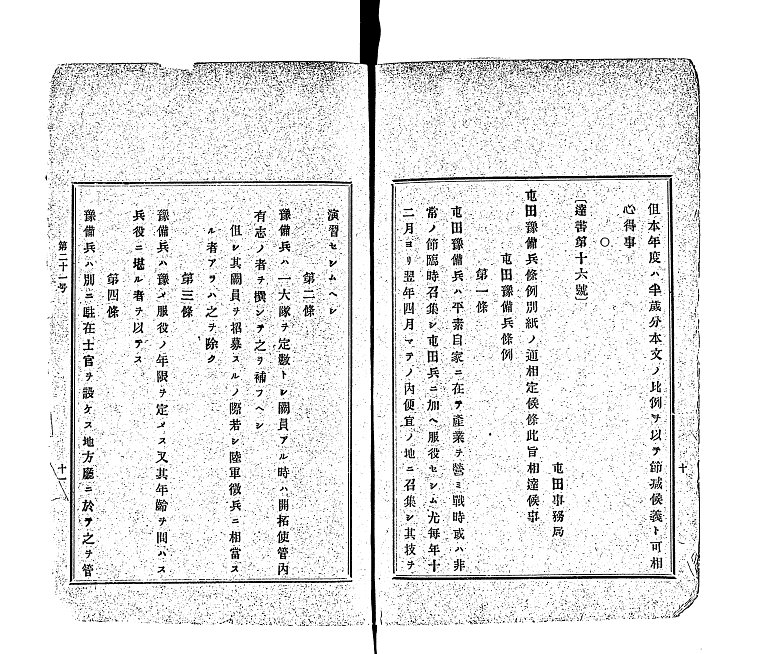 但本年度ハ半歳分本文ノ比例ヲ以テ節减候義ト可相
心得事
○
〔達書第十六號〕
屯田事務局
屯田豫備兵條例別紙ノ通相定候條此旨相達候事
屯田豫備兵條例
第一條
屯田豫備兵ハ平素自家ニ在テ產業ヲ營ミ戰時或ハ非
常ノ節臨時召集シ屯田兵ニ加ヘ服役セシム尤每年十
二月ヨリ翌年四月マテノ内便宜ノ地ニ召集シ其技ヲ
十
演習セシムヘシ
第二條
豫備兵ハ一大隊ヲ定數トシ闕員アル時ハ開拓使管内
有志ノ者ヲ撰ンテ之ヲ補フヘシ
但シ其闕員ヲ招募スルノ際若シ陸軍徵兵ニ相當ス
ル者アラハ之ヲ除ク
第三條
豫備兵ハ豫メ服役ノ年限ヲ定メス又其年齡ヲ問ハス
兵役ニ堪ル者ヲ以テス
第四條
豫備兵ハ別ニ駐在士官ヲ設ケス地方廳ニ於テ之ヲ管
第二十一号
十一